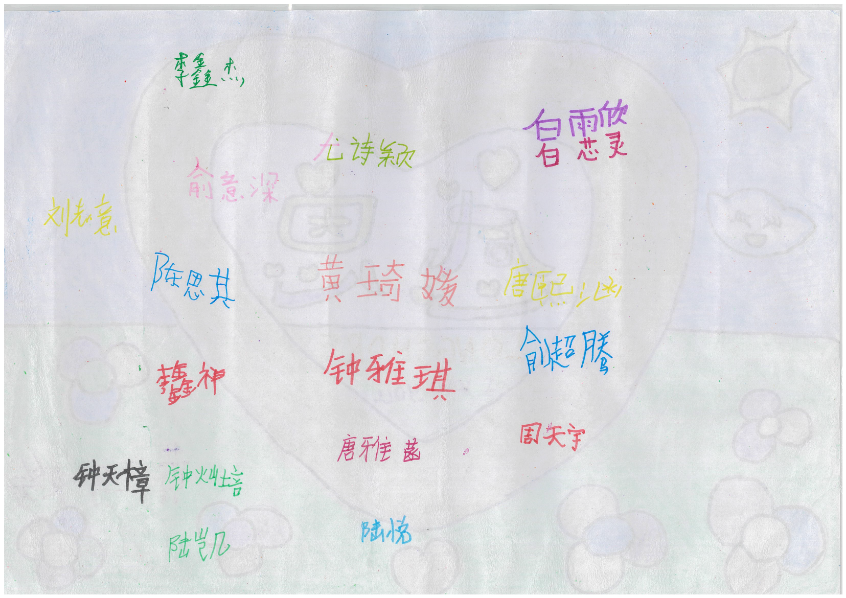 李鑫杰
白雨欣
尤诗颖
白芯灵
俞意深
刘志意
陈思其
黄琦媛
唐熙涵
俞超腾
钟雅琪
周天宇
唐雅菡
钟天樟
钟灿培
陆悦
陆岂几